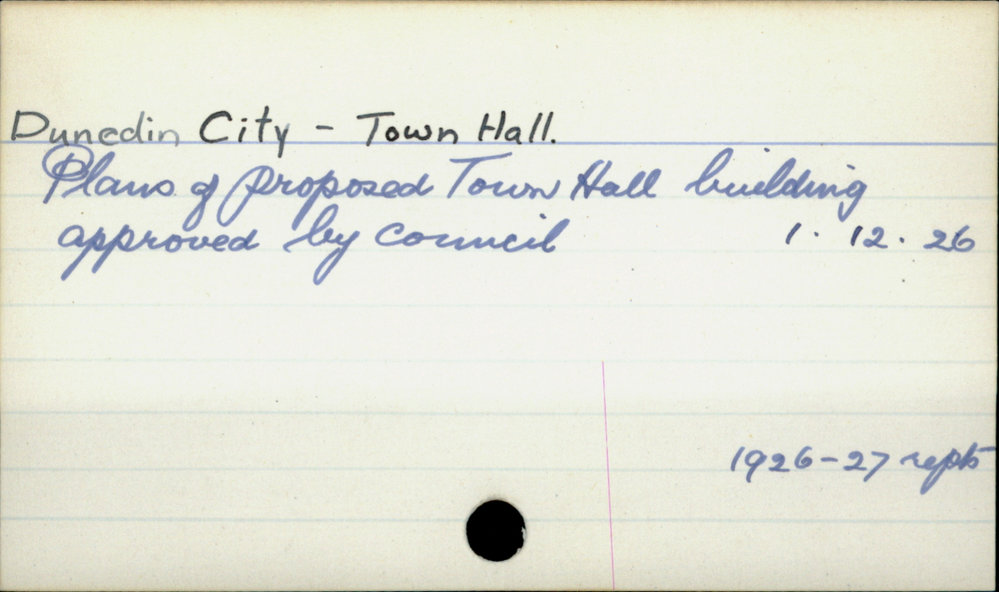 Dunedin City - Town Hall.
Plans of proposed Town Hall building
approved by council 1. 12. 26
1926-27 repts